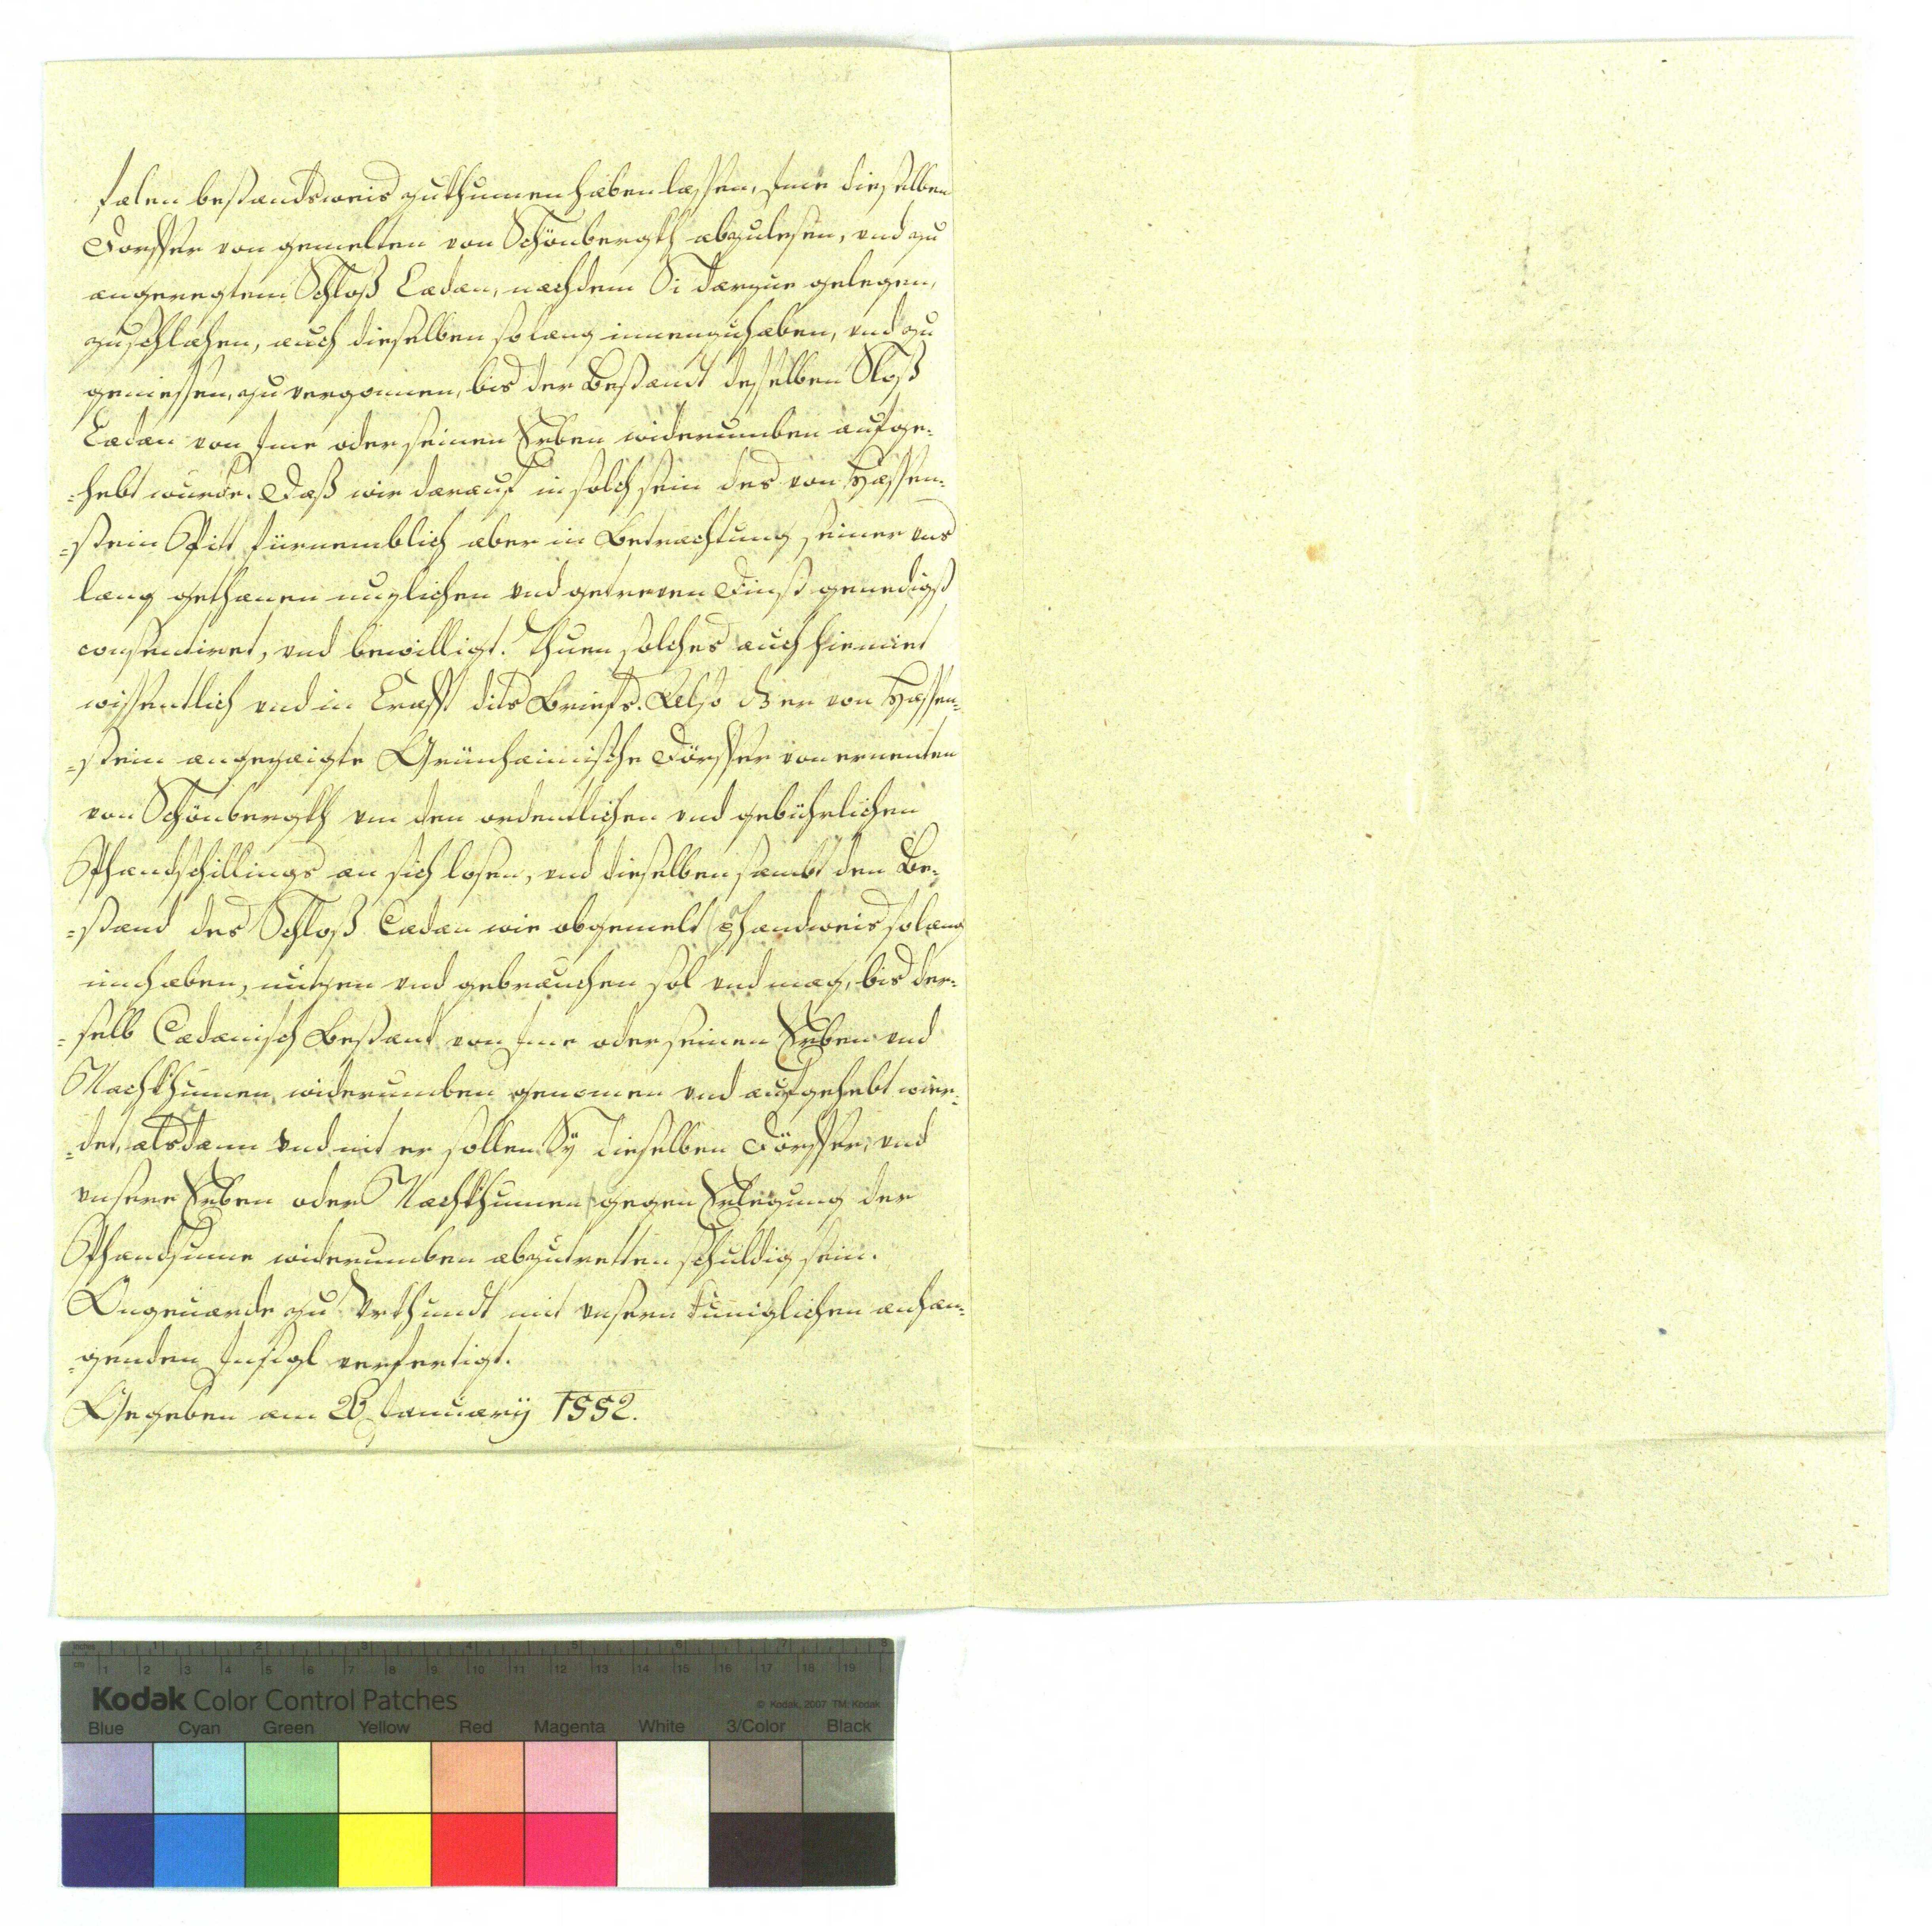 falen bestandsweis zuthumen haben lassen, Ime dieselben
Dörffer von gemelten von Schönbergkh abzulesen, und zu
angeregtem Schloß Cadan, nachdem Si darzue gelegen,
zuschlahen, auch dieselben so lang innenzuhaben, und zu
geniessen, zu vergonnen, bis der Bestandt desselben Sloß
Cadan von Ime oder seinen Erben widerumben aufge-
=hebt wurde. Daß wir darauf in solch sein des von Hassen-
=stein Pitt fürnemblich aber in Betrachtung seiner uns
lang gethanen nuzlichen und getreuen Dinst genedigst
consentiret, und bewilligt. Thuen solches auch hiemiet
wissentlich und in Crafft dits Briefs. Also dz er von Hassen-
=stein angezaigte Grünhainische Dörffer von ernenten
von Schönbergkh um den ordentlichen und gebührlichen
Phandschillings an sich losen, und dieselben sambt den Be-
=stand des Schloß Cadan wie obgemelt phandweis so lang
innhaben, nutzen und gebrauchen sol und mag, bis der-
=selb Cadanisch Bestant von Ime oder seinen Erben und
Nachkhumen widerumben genomen und aufgehebt wier-
=det, alsdann und nit er sollen Sÿ dieselben Dörffer, und
unsere Erben oder Nachkhumen gegen Erlegung der
Phandsume widerumben abzutretten schuldig sein.
Ongeuarde zu Urkhundt mit unsern küniglichen anhan-
=genden Insigl verfertigt.
Gegeben am 26 Januarij 1552.
Kodak Color Control Patches
© Kodak, 2007 TM: Kodak
Blue Cyan Green Yellow Red Magenta White 3/Color Black